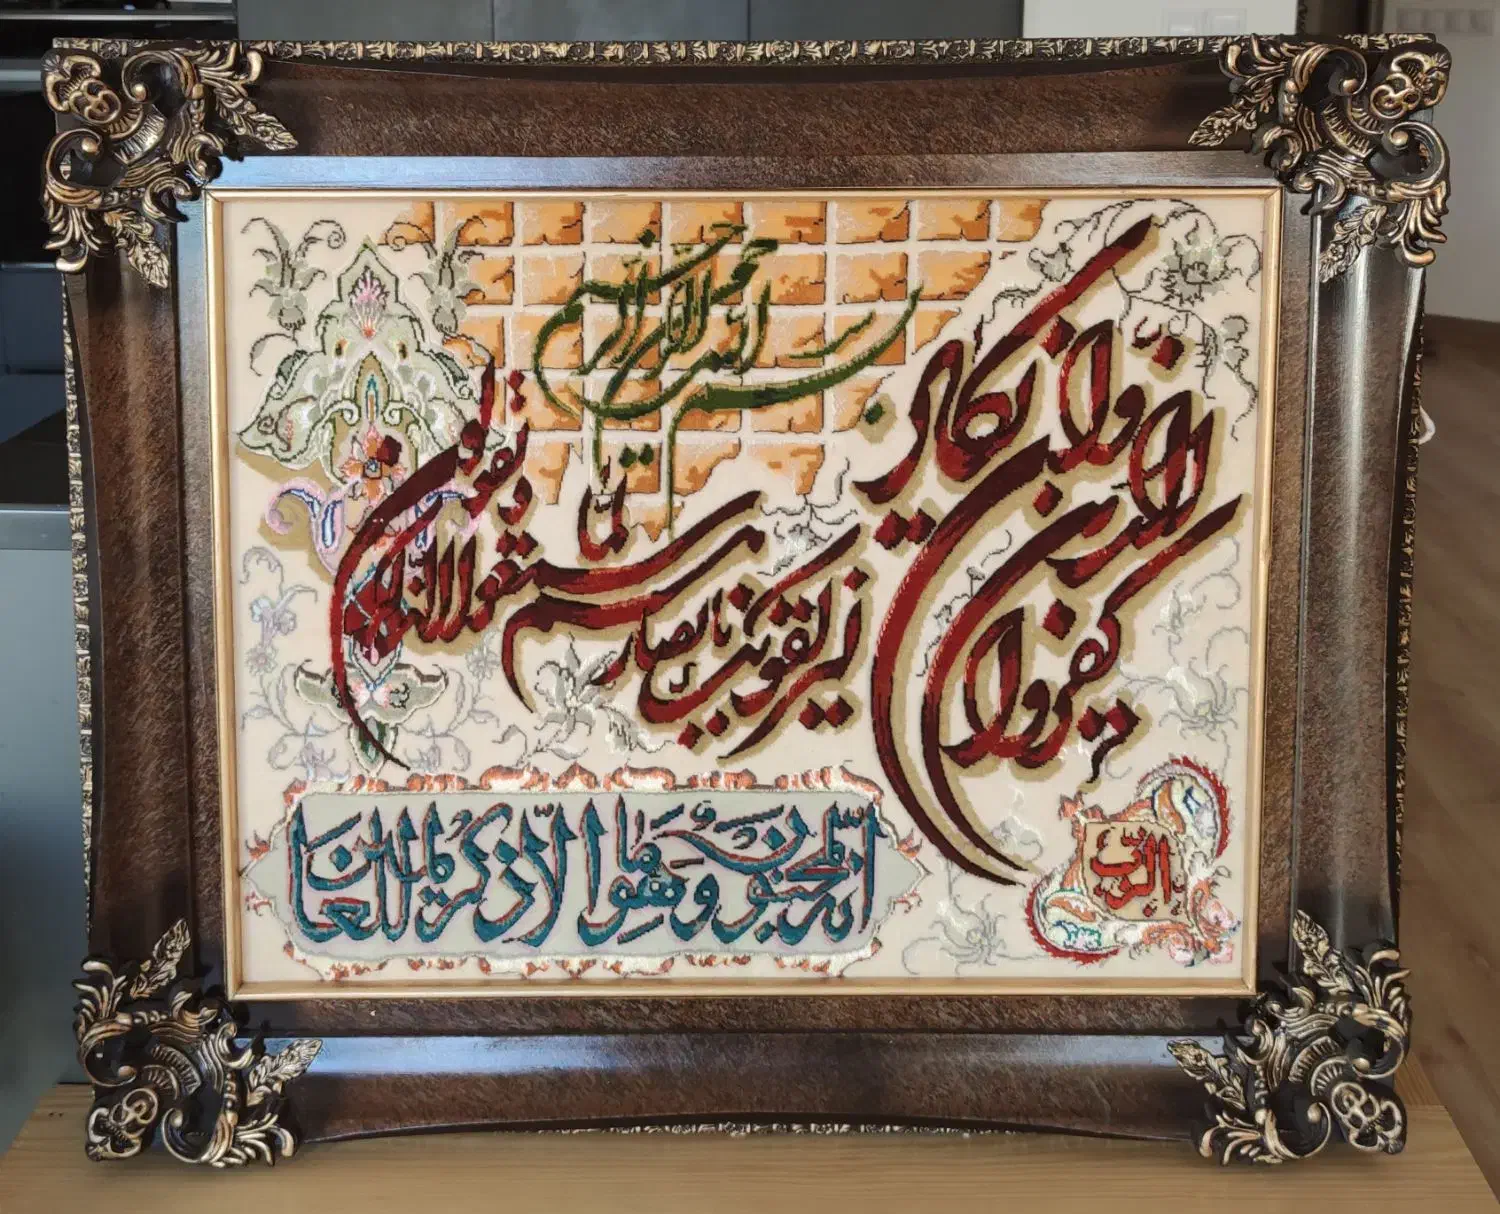 بسم الله الرحمن الرحیم
وان یکاد الذین کفروا
لیزلقونک بابصارهم لما سمعوا الذکر و یقولون
انه لمجنون وما هو الا ذکر للعالمین